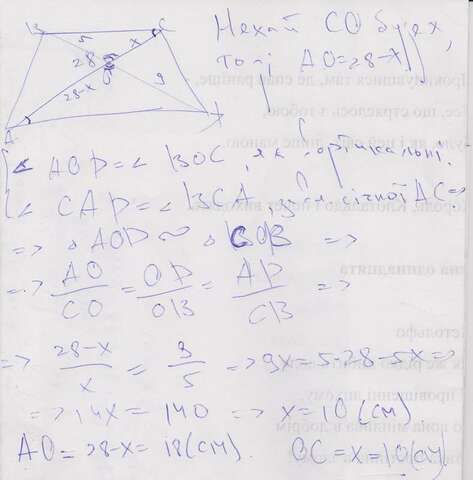 B 5 x C
28 O
28-x 9
A D
Нехай CO буде x,
тоді AO=28-x
{ < AOD = < BOC, як вертикальні.
< CAD = < BCA, січної AC =>
=> △ AOD ~ △ COB =>
=> AO/CO = OD/OB = AD/CB =>
=> 28-x/x = 9/5 => 9x = 5·28-5x =>
=> 14x = 140 => x = 10 (см)
AO = 28-x = 18 (см). OC = x = 10 (см)